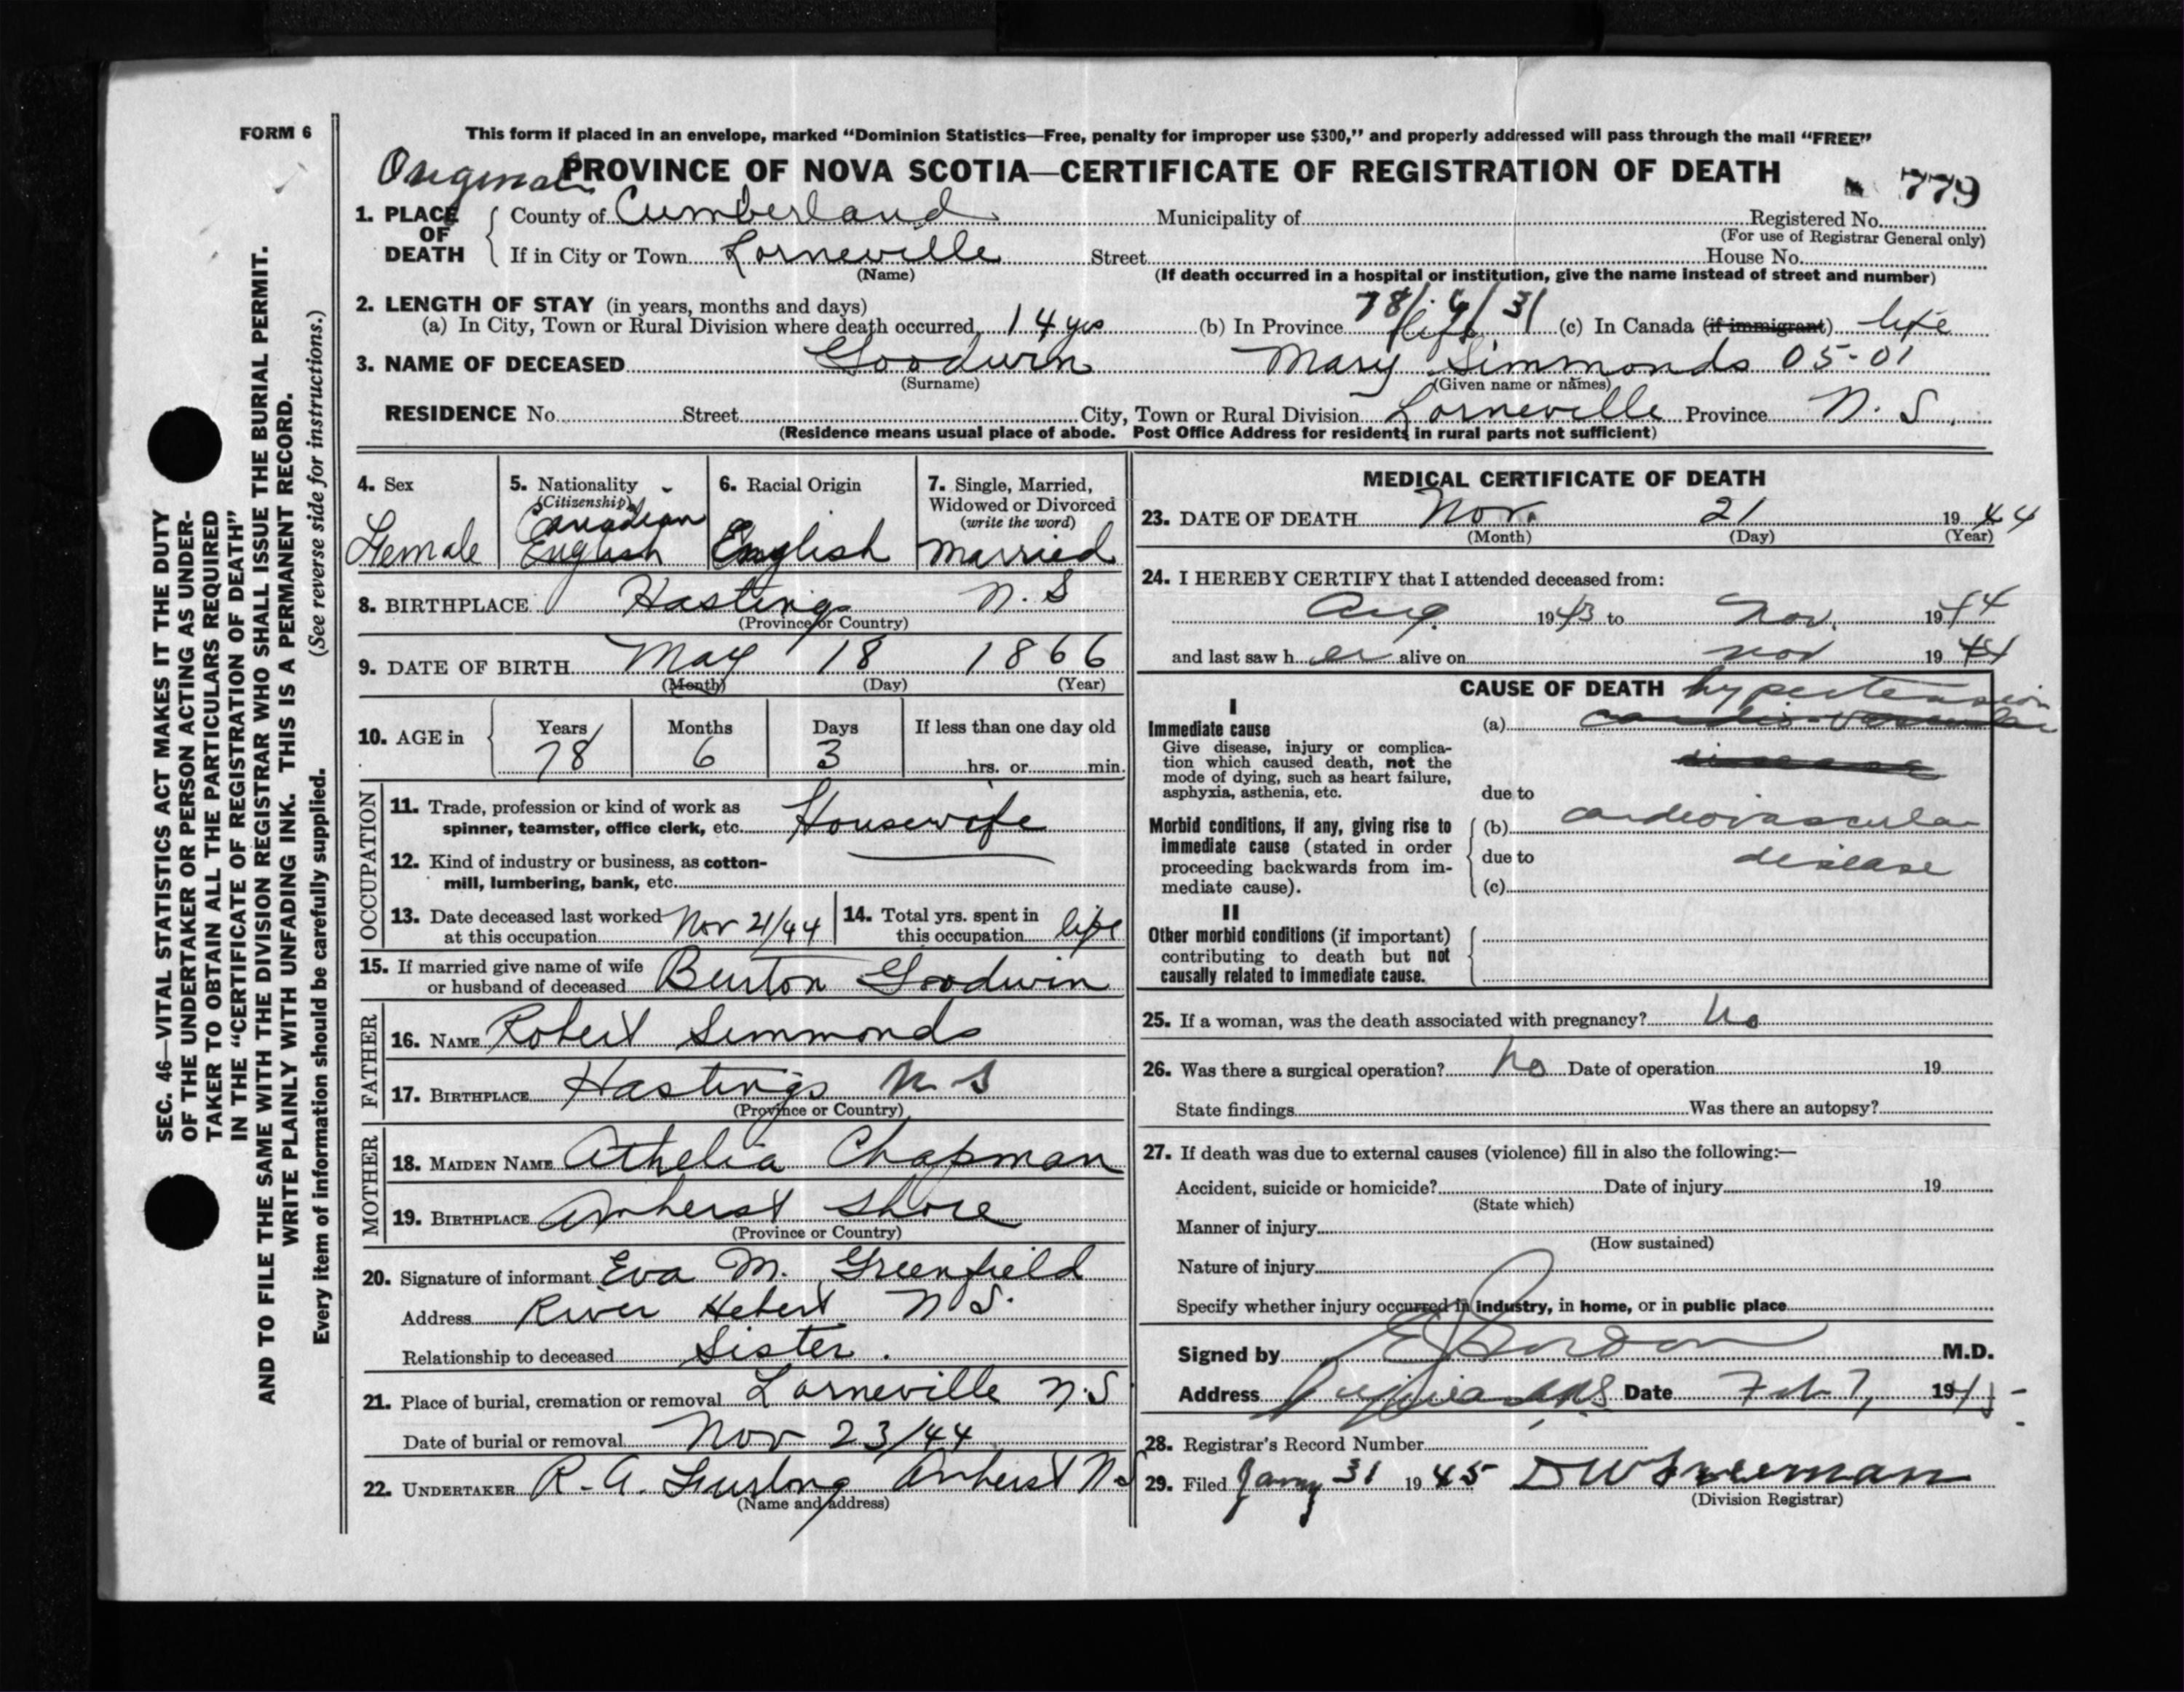 FORM 6
This form if placed in an envelope, marked “Dominion Statistics—Free, penalty for improper use $300,” and properly addressed will pass through the mail “FREE”
Original
PROVINCE OF NOVA SCOTIA—CERTIFICATE OF REGISTRATION OF DEATH
779
1. PLACE OF DEATH
County of Cumberland Municipality of Registered No.
(For use of Registrar General only)
If in City or Town Lorneville Street House No.
(Name) (If death occurred in a hospital or institution, give the name instead of street and number)
2. LENGTH OF STAY (in years, months and days) 78/ 6/ 3/
(a) In City, Town or Rural Division where death occurred 14 yrs (b) In Province life (c) In Canada (if immigrant) life
3. NAME OF DECEASED Goodwin Mary Simmonds 05-01
(Surname) (Given name or names)
RESIDENCE No. Street City, Town or Rural Division Lorneville Province N. S.
(Residence means usual place of abode. Post Office Address for residents in rural parts not sufficient)
4. Sex
Female
5. Nationality
(Citizenship)
Canadian
English
6. Racial Origin
English
7. Single, Married,
Widowed or Divorced
(write the word)
Married
8. BIRTHPLACE Hastings N. S
(Province or Country)
9. DATE OF BIRTH May 18 1866
(Month) (Day) (Year)
10. AGE in
Years Months Days If less than one day old
78 6 3 hrs. or min.
OCCUPATION
11. Trade, profession or kind of work as
spinner, teamster, office clerk, etc. Housewife
12. Kind of industry or business, as cotton-
mill, lumbering, bank, etc.
13. Date deceased last worked
at this occupation Nov 21/44
14. Total yrs. spent in
this occupation life
15. If married give name of wife
or husband of deceased Burton Goodwin
FATHER
16. NAME Robert Simmonds
17. BIRTHPLACE Hastings N. S
(Province or Country)
MOTHER
18. MAIDEN NAME Athelia Chapman
19. BIRTHPLACE Amherst Shore
(Province or Country)
20. Signature of informant Eva M. Greenfield
Address River Hebert N S.
Relationship to deceased Sister.
21. Place of burial, cremation or removal Lorneville N.S
Date of burial or removal Nov 23/44
22. UNDERTAKER R. A. Furlong Amherst N S
(Name and address)
MEDICAL CERTIFICATE OF DEATH
23. DATE OF DEATH Nov. 21 1944
(Month) (Day) (Year)
24. I HEREBY CERTIFY that I attended deceased from:
Aug. 1943 to Nov. 1944
and last saw her alive on Nov 1944
CAUSE OF DEATH hypertension
I
Immediate cause
Give disease, injury or complica-
tion which caused death, not the
mode of dying, such as heart failure,
asphyxia, asthenia, etc.
(a) cardio-vascular
disease
due to
Morbid conditions, if any, giving rise to
immediate cause (stated in order
proceeding backwards from im-
mediate cause).
(b) cardiovascular
due to disease
(c)
II
Other morbid conditions (if important)
contributing to death but not
causally related to immediate cause.
25. If a woman, was the death associated with pregnancy? No
26. Was there a surgical operation? No Date of operation 19
State findings Was there an autopsy?
27. If death was due to external causes (violence) fill in also the following:—
Accident, suicide or homicide? Date of injury 19
(State which)
Manner of injury
(How sustained)
Nature of injury
Specify whether injury occurred in industry, in home, or in public place
Signed by M.D.
Address Date Feb 7, 194
28. Registrar's Record Number
29. Filed Jany 31 1945 D W Freeman
(Division Registrar)
SEC. 46—VITAL STATISTICS ACT MAKES IT THE DUTY
OF THE UNDERTAKER OR PERSON ACTING AS UNDER-
TAKER TO OBTAIN ALL THE PARTICULARS REQUIRED
IN THE “CERTIFICATE OF REGISTRATION OF DEATH”
AND TO FILE THE SAME WITH THE DIVISION REGISTRAR WHO SHALL ISSUE THE BURIAL PERMIT.
WRITE PLAINLY WITH UNFADING INK. THIS IS A PERMANENT RECORD.
Every item of information should be carefully supplied. (See reverse side for instructions.)